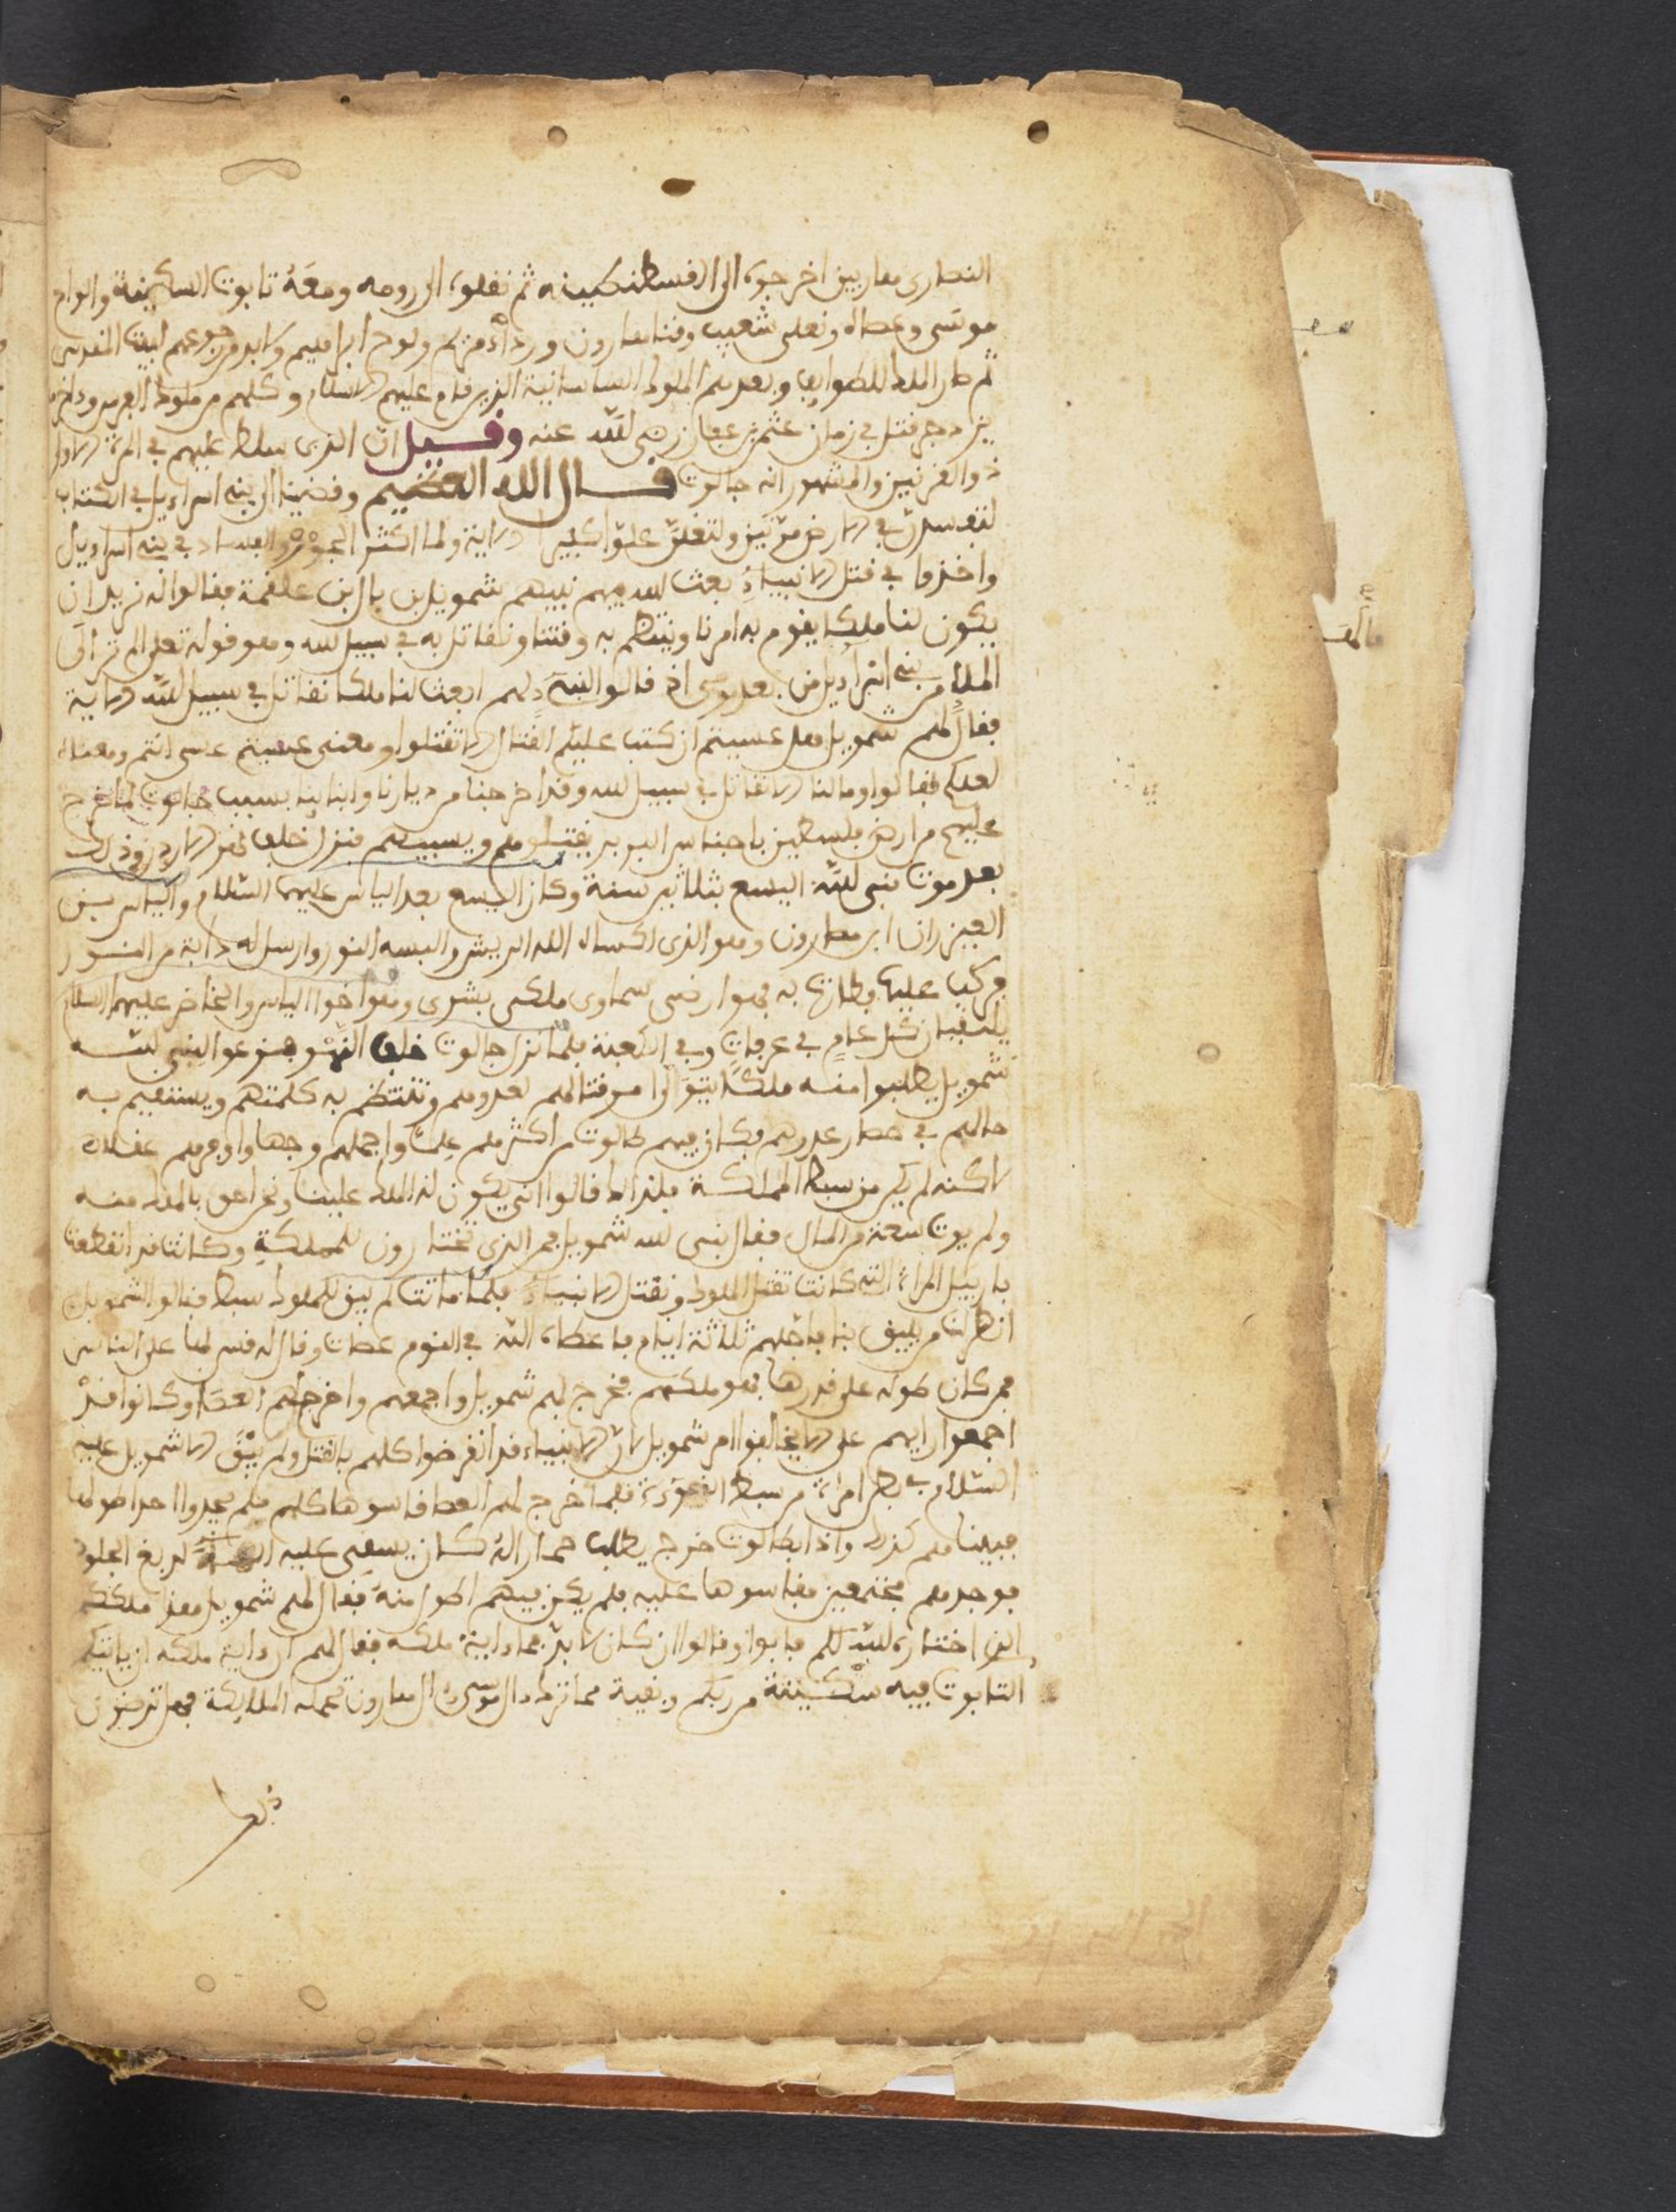 النصارى هاربين اخرجوه الى القسطنطينيه ثم نقلوه الى رومه ومعه تابوت السكينة والواح
موسى وعصاه ونعلى شعيب وقنا هارون ورداؤه ولوح ابراهيم ولابد من رجوعهم لبيت المقدس
ثم صار الملك للطوايف وبعدهم الملوك الساسانية الذين قام عليهم الاسلام وكلهم من ملوك الفرس وءاخرهم
يزدجرد قتل في زمان عثمن بن عفان رضى الله عنه وقيل ان الذى سلط عليهم في المرة الاولى
ذو القرنين والمشهور انه جالوت قال الله العظيم وقضينا الى بنى اسراءيل في الكتاب
لتفسدن في الارض مرتين ولتعلن علوا كبيرا الاية ولما اكثر الجور والفساد في بنى اسراءيل
واخذوا في قتل الانبياء بعث الله فيهم نبيهم شمويل بن بال بن علقمة فقالوا له نريد ان
يكون لنا ملكا يقوم به امرنا وينتظم به وقتنا ونقاتل به في سبيل الله وهو قوله تعلى الم تر الى
الملإ من بنى اسراءيل من بعد موسى اذ قالوا لنبىء لهم ابعث لنا ملكا نقاتل في سبيل الله الاية
فقال لهم شمويل هل عسيتم ان كتب عليكم القتال الا تقتلوا ومعنى عسيتم عسى انتم ومعناه
لعلكم فقالوا وما لنا الا نقاتل في سبيل الله وقد اخرجنا من ديارنا وابناينا بسبب جالوت لما خرج
عليهم من ارض فلسطين باجناس البربر يقتلوهم ويسبيهم فنزل خلف نهر الاردن وذلك
بعد موت نبى الله اليسع بثلاثين سنة وكان اليسع بعد الياس عليهما السلام والياس بن
العيزران ابن هارون وهو الذى اكساه الله الريش والبسه النور وارسل له دابة من النور
فركب عليها وطارت به فهو ارضى سماوى ملكى بشرى وهو اخوا الياس والخاضر عليهم السلام
يلتقيان كل عام في عرفات وفي الكعبة فلما نزل جالوت خلف النهر فزعوا لنبى الله
شمويل يطلبوا منه ملكا يتولا امر قتالهم لعدوهم وتنتظم به كلمتهم ويستقيم به
حالهم في حصار عدوهم فكان فيهم طالوت من اكثرهم علما واجملهم وجها واوفرهم عقلا
لاكنه لم يكن من سبط المملكة فلذالك قالوا انى يكون له الملك علينا ونحن احق بالملك منه
ولم يوت سعة من المال فقال لنبى الله شمويل فمن الذى تختارون للمملكة وكانت قد انقطعت
باربيل المراة التى كانت تقتل الملوك وتقتل الانبياء فلما ماتت لم يبق للملوك سبط فقالوا لشمويل
انظر لنا من يليق بنا فاجلهم ثلاثة ايام فاعطاه الله في النوم عصات وقال له قس بها على الناس
فمن كان طوله على قدرها فهو ملكهم فخرج لهم شمويل واجمعهم واخرج لهم العصا وكانوا قد
اجمعوا رايهم على ان لا يخالفوا امر شمويل لان الانبياء قد انقرضوا كلهم بالقتل ولم يبق الا شمويل عليه
السلام في بطن امراة من سبط النبوءة فلما اخرج لهم العصا قاسوها كلهم فلم يجدوا احدا طولها
فبينما هم كذلك واذا بطالوت خرج يطلب حمارا له كان يسقى عليه الماء لدبغ الجلود
فوجدهم مجتمعين فقاسوها عليه فلم يكن فيهم اطول منه فقال لهم شمويل هذا ملككم
الذى اختاره الله لكم فابوا وقالوا ان كان لابد فما ءاية ملكه فقال لهم ان ءاية ملكه ان ياتيكم
التابوت فيه سكينة من ربكم وبقية مما ترك ءال موسى وءال هارون تحمله الملايكة فهل ترضون
ذلك